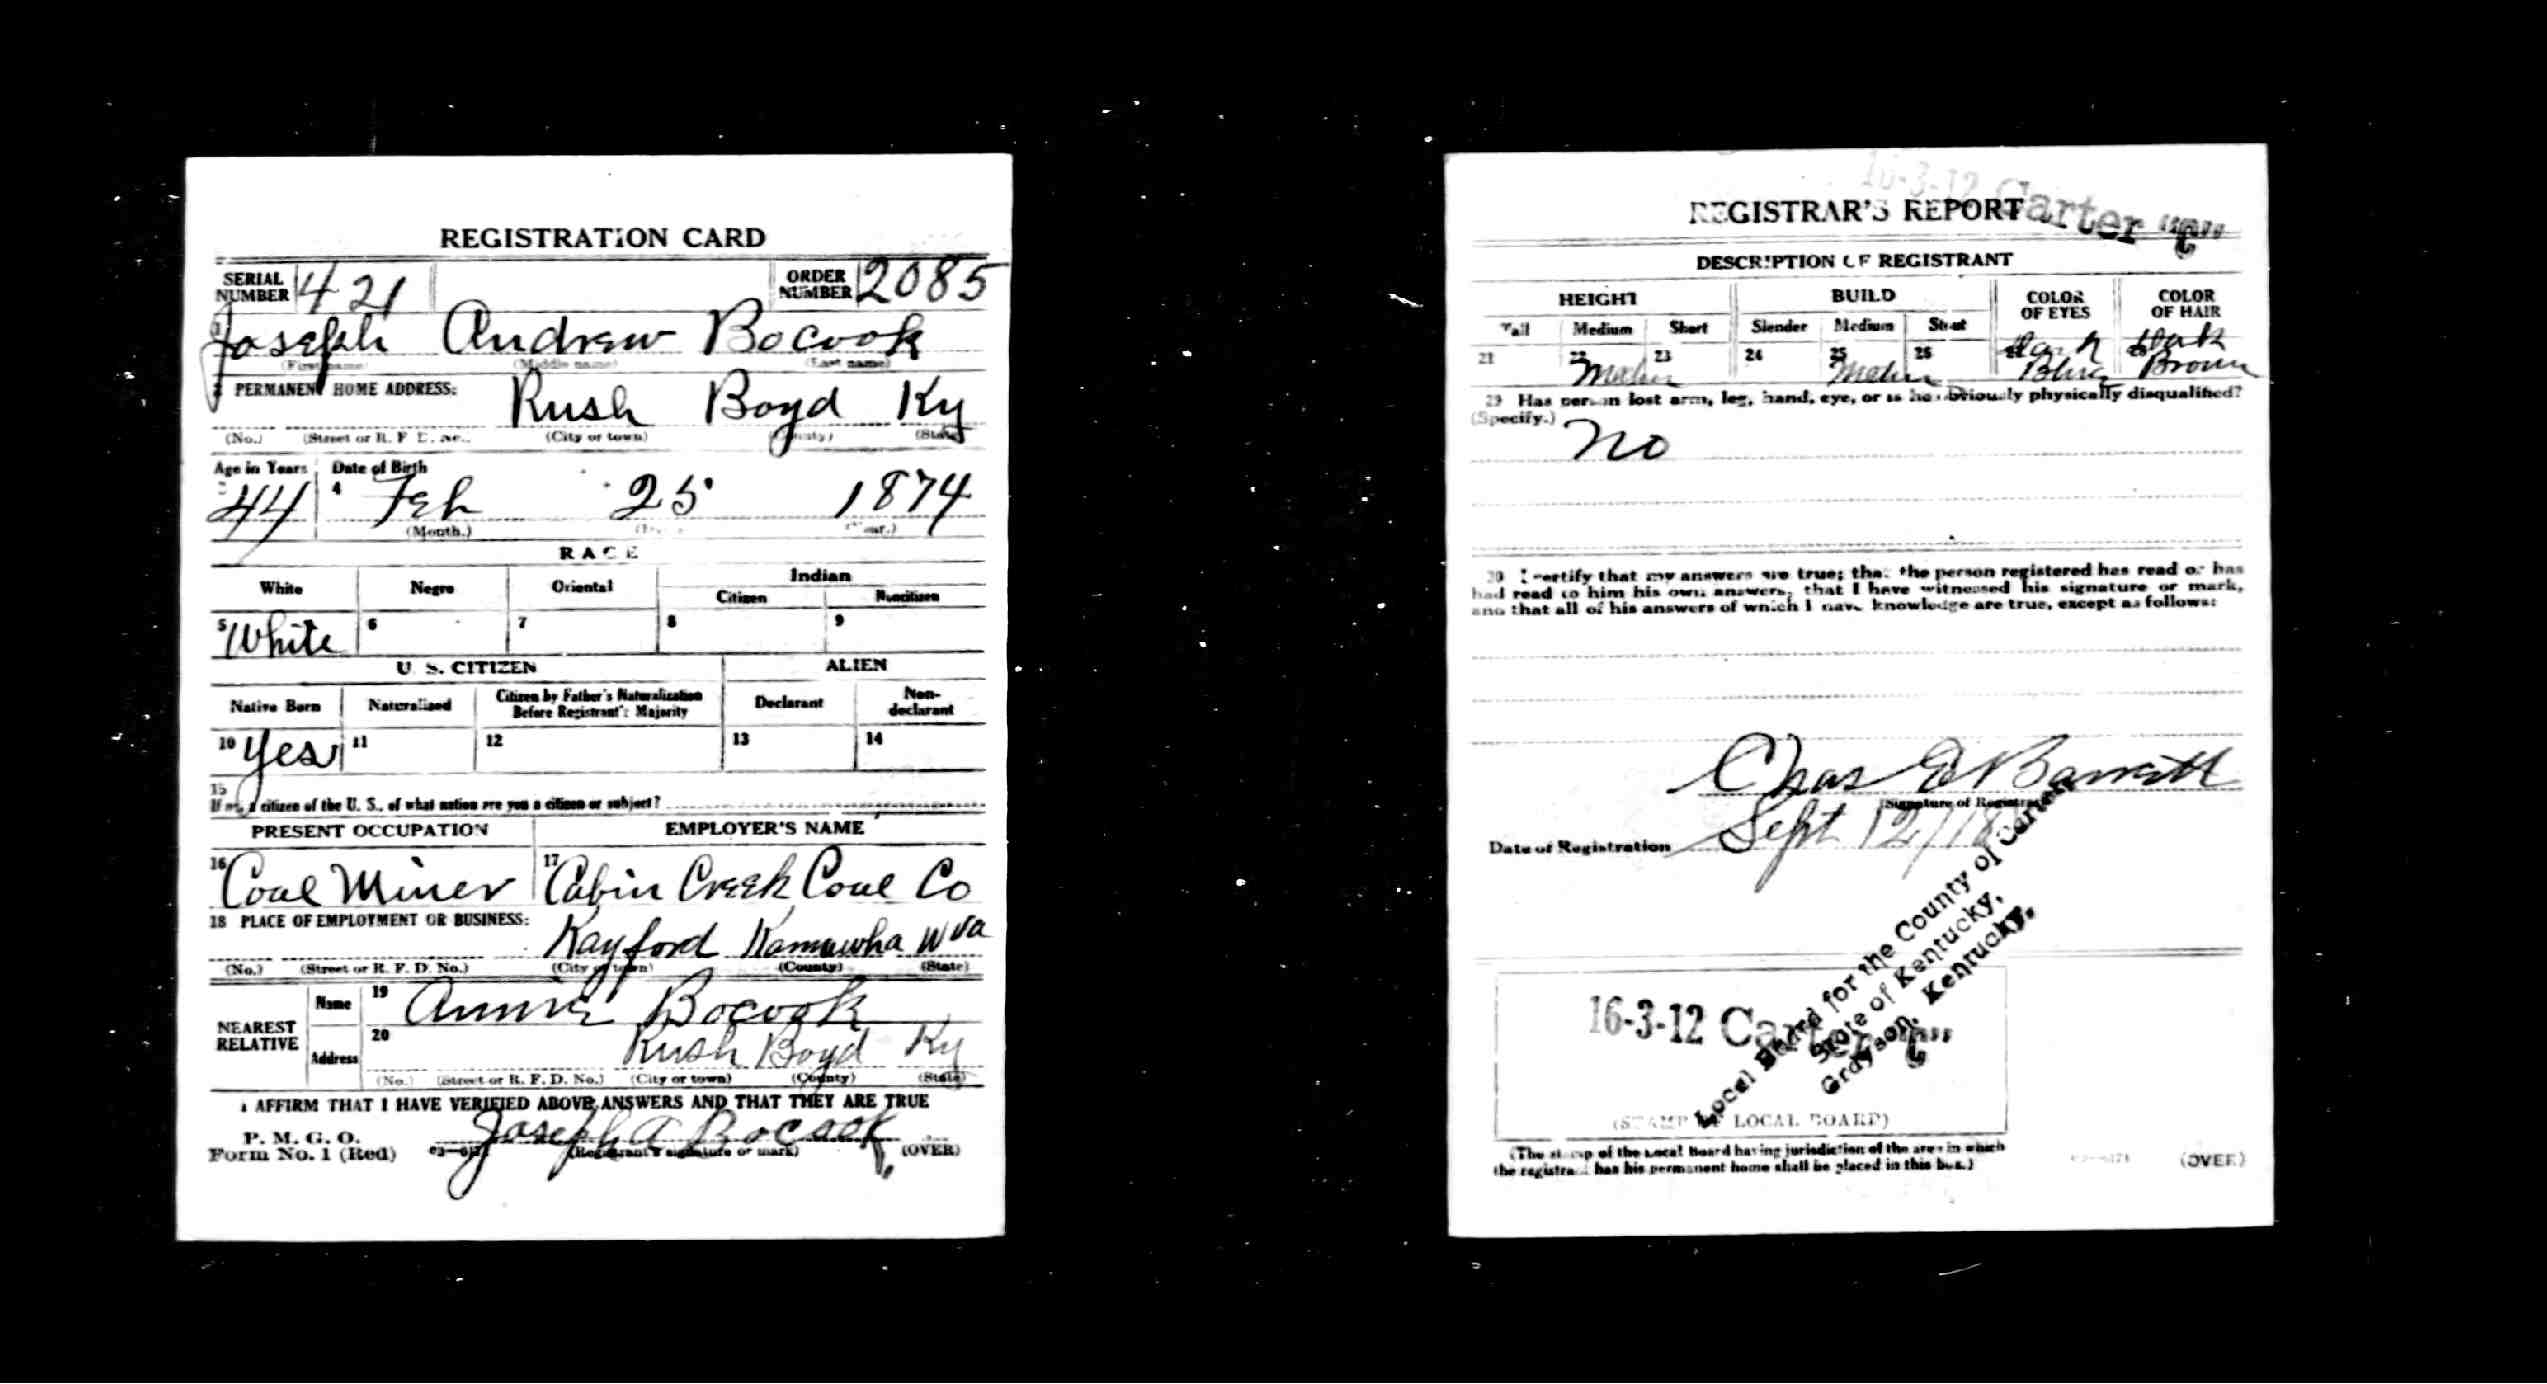 REGISTRATION CARD
SERIAL NUMBER 421 ORDER NUMBER 2085
1 Joseph Andrew Bocook
(First name) (Middle name) (Last name)
2 PERMANENT HOME ADDRESS: Rush Boyd Ky
(No.) (Street or R. F. D. No.) (City or town) (County) (State)
Age in Years Date of Birth
44 4 Feb 25 1874
(Month.) (Year.)
RACE
White Negro Oriental Indian
Citizen Noncitizen
5 White 6 7 8 9
U. S. CITIZEN ALIEN
Native Born Naturalized Citizen by Father's Naturalization Before Registrant's Majority Declarant Non-declarant
10 Yes 11 12 13 14
15
If not a citizen of the U. S., of what nation are you a citizen or subject?
PRESENT OCCUPATION EMPLOYER'S NAME
16 Coal Miner 17 Cabin Creek Coal Co
18 PLACE OF EMPLOYMENT OR BUSINESS:
Kayford Kanawha W Va
(No.) (Street or R. F. D. No.) (City or town) (County) (State)
NEAREST RELATIVE Name 19 Annie Bocook
Address 20 Rush Boyd Ky
(No.) (Street or R. F. D. No.) (City or town) (County) (State)
I AFFIRM THAT I HAVE VERIFIED ABOVE ANSWERS AND THAT THEY ARE TRUE
P. M. G. O.
Form No. 1 (Red) Joseph A Bocook
(Registrant's signature or mark) (OVER)
16-3-12 Carter "C"
REGISTRAR'S REPORT
DESCRIPTION OF REGISTRANT
HEIGHT BUILD COLOR OF EYES COLOR OF HAIR
Tall Medium Short Slender Medium Stout
21 22 23 24 25 26 Dark Dark
Blue Brown
29 Has person lost arm, leg, hand, eye, or is he obviously physically disqualified?
(Specify.) No
30 I certify that my answers are true; that the person registered has read or has
had read to him his own answers; that I have witnessed his signature or mark,
and that all of his answers of which I have knowledge are true, except as follows:
Chas E Barrett
(Signature of Registrar)
Date of Registration Sept 12/18
Local Board for the County of Carter,
State of Kentucky,
Grayson, Kentucky,
16-3-12 Carter "C"
(STAMP OF LOCAL BOARD)
(The stamp of the Local Board having jurisdiction of the area in which
the registrant has his permanent home shall be placed in this box.)
(OVER)